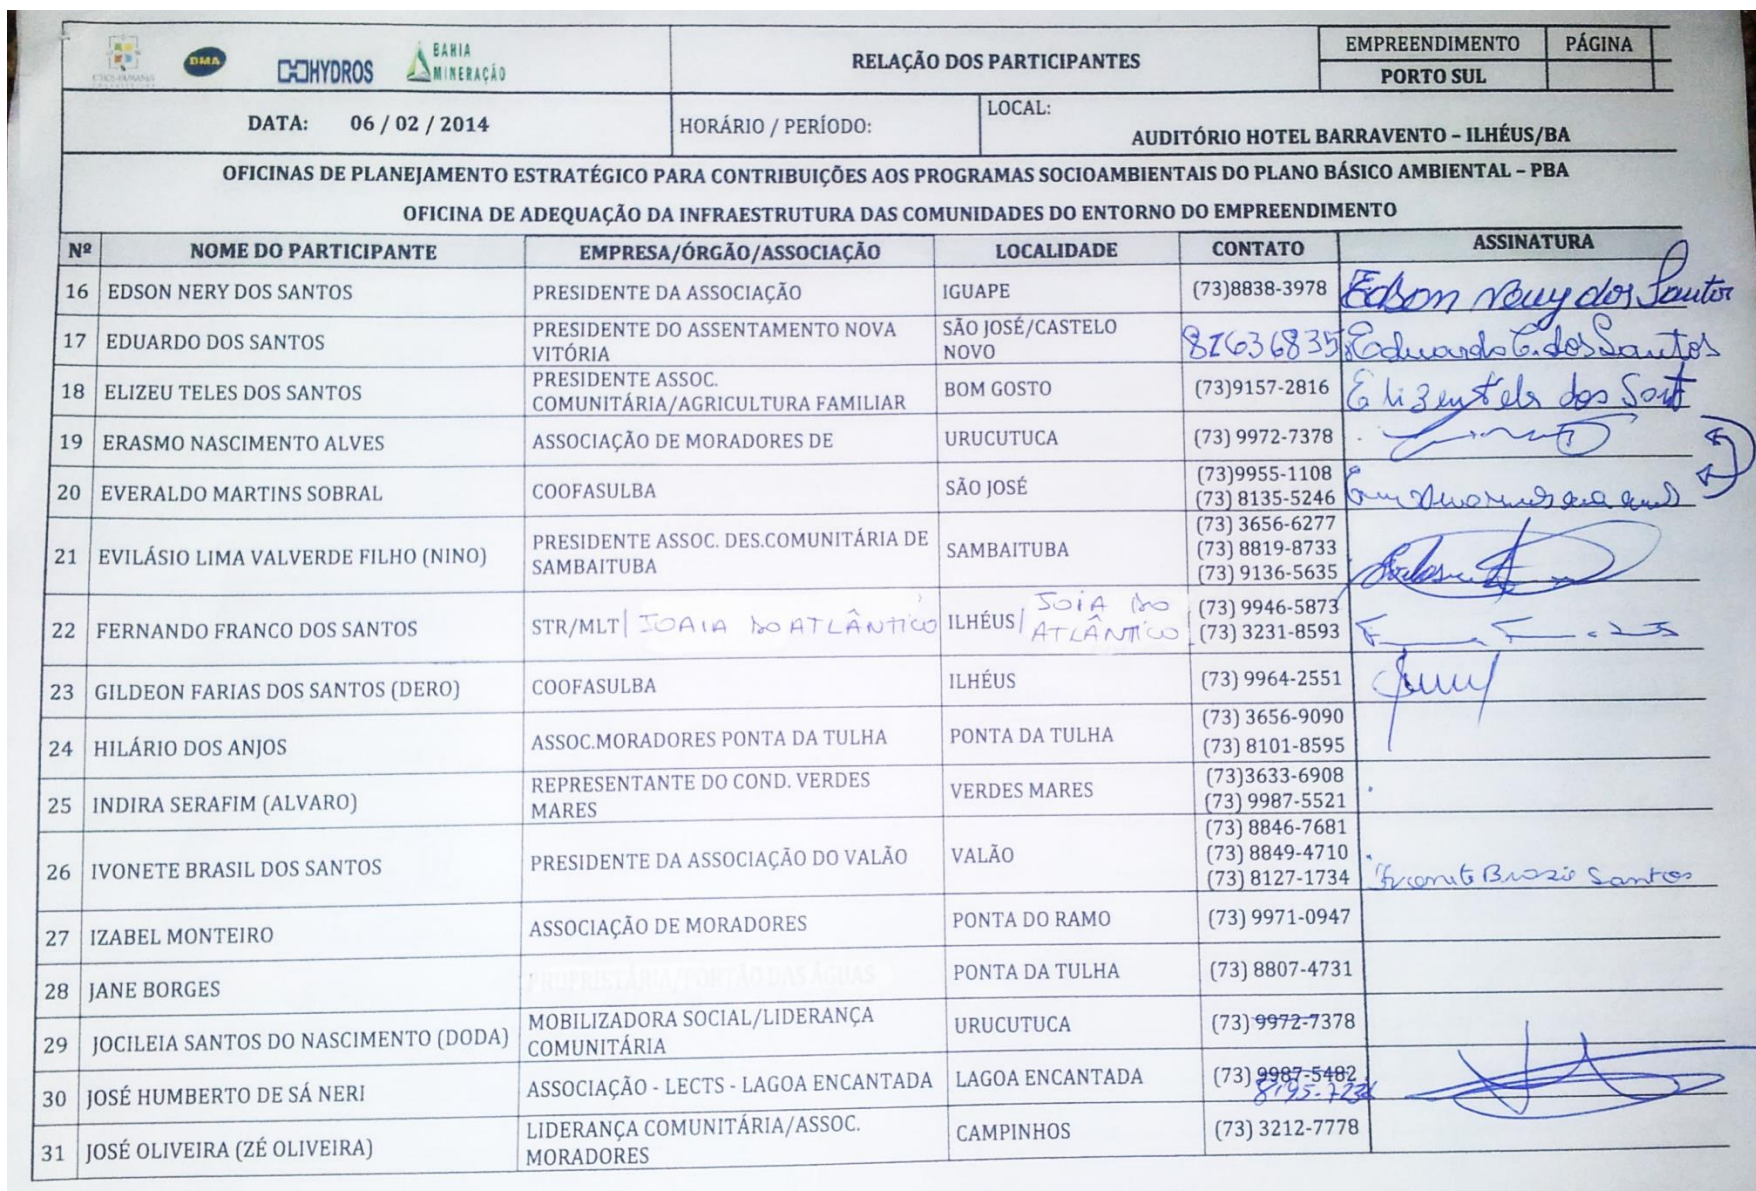 DMA
HYDROS
BAHIA
MINERAÇÃO
RELAÇÃO DOS PARTICIPANTES
EMPREENDIMENTO
PÁGINA
PORTO SUL
DATA: 06 / 02 / 2014
HORÁRIO / PERÍODO:
LOCAL:
AUDITÓRIO HOTEL BARRAVENTO – ILHÉUS/BA
OFICINAS DE PLANEJAMENTO ESTRATÉGICO PARA CONTRIBUIÇÕES AOS PROGRAMAS SOCIOAMBIENTAIS DO PLANO BÁSICO AMBIENTAL – PBA
OFICINA DE ADEQUAÇÃO DA INFRAESTRUTURA DAS COMUNIDADES DO ENTORNO DO EMPREENDIMENTO
Nº NOME DO PARTICIPANTE EMPRESA/ÓRGÃO/ASSOCIAÇÃO LOCALIDADE CONTATO ASSINATURA
16 EDSON NERY DOS SANTOS PRESIDENTE DA ASSOCIAÇÃO IGUAPE (73)8838-3978 Edson Nery dos Santos
17 EDUARDO DOS SANTOS PRESIDENTE DO ASSENTAMENTO NOVA
VITÓRIA
SÃO JOSÉ/CASTELO
NOVO
81636835 Eduardo C. dos Santos
18 ELIZEU TELES DOS SANTOS PRESIDENTE ASSOC.
COMUNITÁRIA/AGRICULTURA FAMILIAR
BOM GOSTO (73)9157-2816 Elizeu Teles dos Sant
19 ERASMO NASCIMENTO ALVES ASSOCIAÇÃO DE MORADORES DE URUCUTUCA (73) 9972-7378
20 EVERALDO MARTINS SOBRAL COOFASULBA SÃO JOSÉ (73)9955-1108
(73) 8135-5246
21 EVILÁSIO LIMA VALVERDE FILHO (NINO) PRESIDENTE ASSOC. DES.COMUNITÁRIA DE
SAMBAITUBA
SAMBAITUBA (73) 3656-6277
(73) 8819-8733
(73) 9136-5635
22 FERNANDO FRANCO DOS SANTOS STR/MLT| JOAIA DO ATLÂNTICO ILHÉUS/ JOIA DO
ATLÂNTICO
(73) 9946-5873
(73) 3231-8593
23 GILDEON FARIAS DOS SANTOS (DERO) COOFASULBA ILHÉUS (73) 9964-2551
24 HILÁRIO DOS ANJOS ASSOC.MORADORES PONTA DA TULHA PONTA DA TULHA (73) 3656-9090
(73) 8101-8595
25 INDIRA SERAFIM (ALVARO) REPRESENTANTE DO COND. VERDES
MARES
VERDES MARES (73)3633-6908
(73) 9987-5521
26 IVONETE BRASIL DOS SANTOS PRESIDENTE DA ASSOCIAÇÃO DO VALÃO VALÃO (73) 8846-7681
(73) 8849-4710
(73) 8127-1734 Ivonete Brasil Santos
27 IZABEL MONTEIRO ASSOCIAÇÃO DE MORADORES PONTA DO RAMO (73) 9971-0947
28 JANE BORGES PROPRIETÁRIA/PORTÃO DAS ÁGUAS PONTA DA TULHA (73) 8807-4731
29 JOCILEIA SANTOS DO NASCIMENTO (DODA) MOBILIZADORA SOCIAL/LIDERANÇA
COMUNITÁRIA
URUCUTUCA (73) 9972-7378
30 JOSÉ HUMBERTO DE SÁ NERI ASSOCIAÇÃO - LECTS - LAGOA ENCANTADA LAGOA ENCANTADA (73) 9987-5482
31 JOSÉ OLIVEIRA (ZÉ OLIVEIRA) LIDERANÇA COMUNITÁRIA/ASSOC.
MORADORES
CAMPINHOS (73) 3212-7778